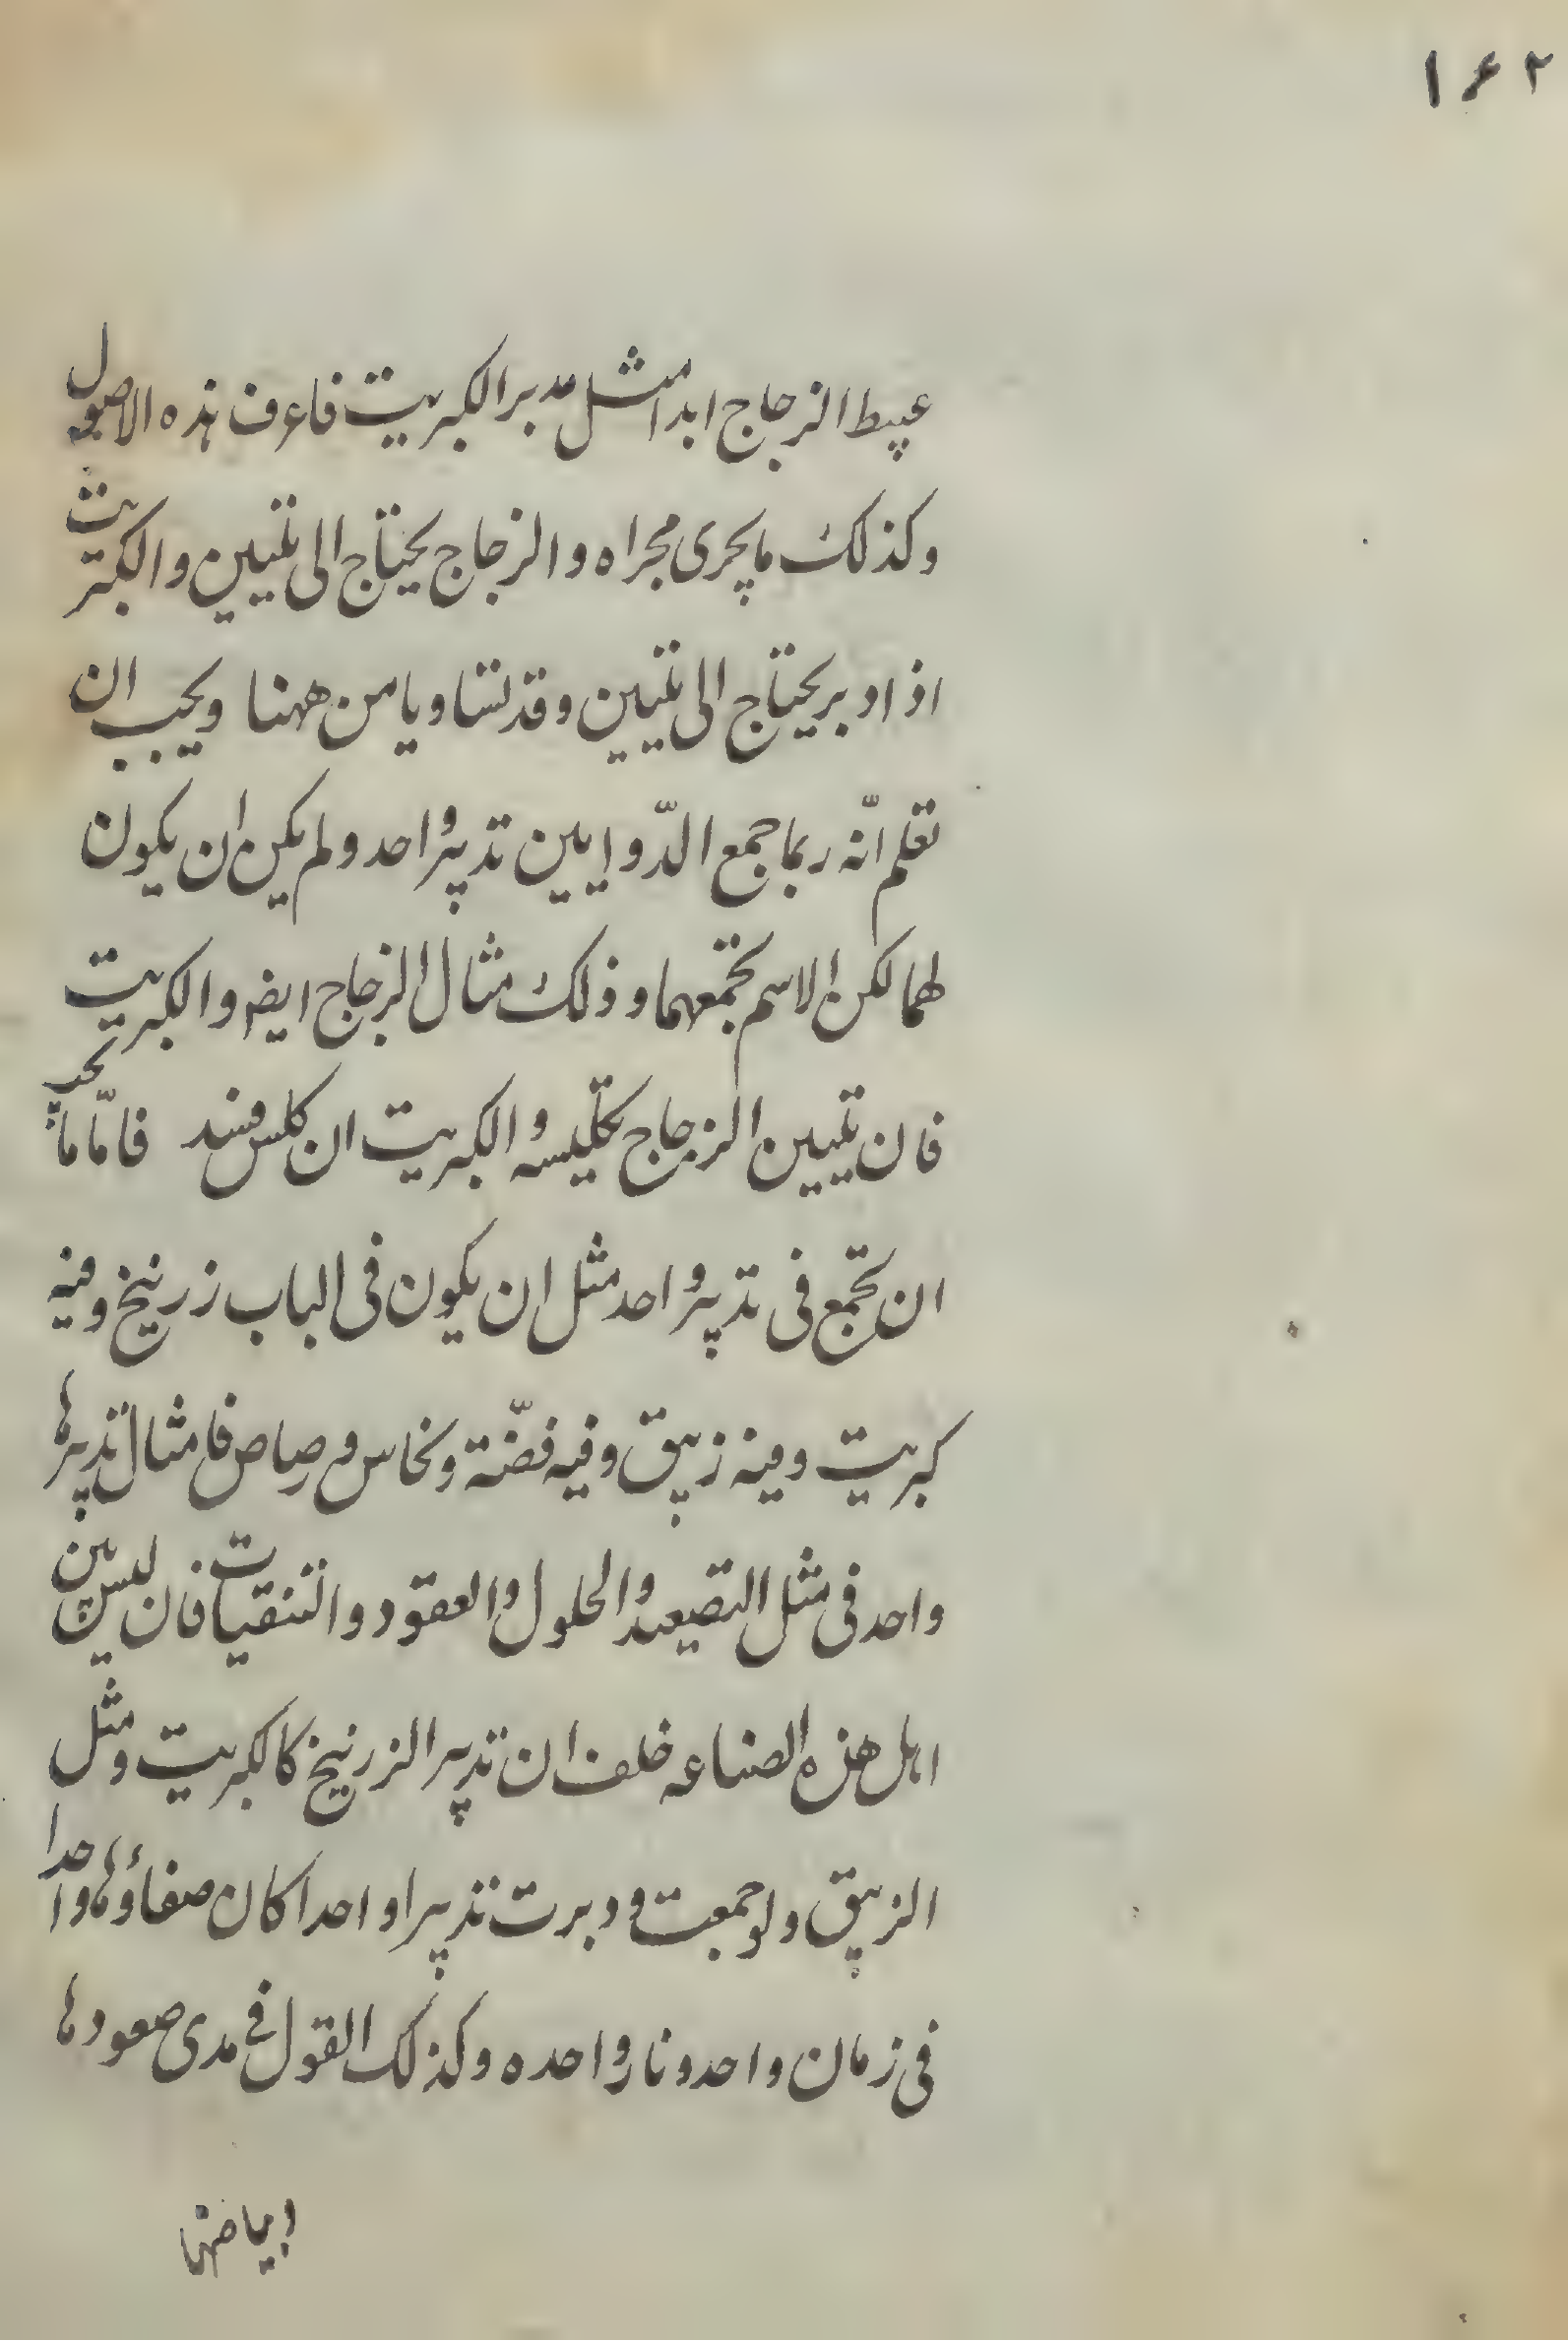 ۱۶۲
عبيط الزجاج ابدا مثل مدبر الكبريت فاعرف هذه الاصول
وكذلك ما يجرى مجراه والزجاج يحتاج الى تليين والكبريت
اذا دبر يحتاج الى تليين وقد تساويا من ههنا ويجب ان
تعلم انّه ربما جمع الدّوايين تدبير واحد ولم يكن ان يكون
لهما لكن الاسم يجمعهما وذلك مثال الزجاج ايضا والكبريت
فان تليين الزجاج تكليسه والكبريت ان كلس فسد فامّا ما يجب
ان يجمع فى تدبير واحد مثل ان يكون فى الباب زرنيخ وفيه
كبريت وفيه زيبق وفيه فضّة ونحاس ورصاص فامثال تدبيرها
واحد فى مثل التصعيد والحلول والعقود والتنقيات فان ليس بين
اهل هذه الصناعه خلف ان تدبير الزرنيخ كالكبريت ومثل
الزيبق ولو جمعت ودبرت تدبيرا واحدا كان صفاؤها واحدا
فى زمان واحد ونار واحده وكذلك القول فى مدى صعودها
وبياضها